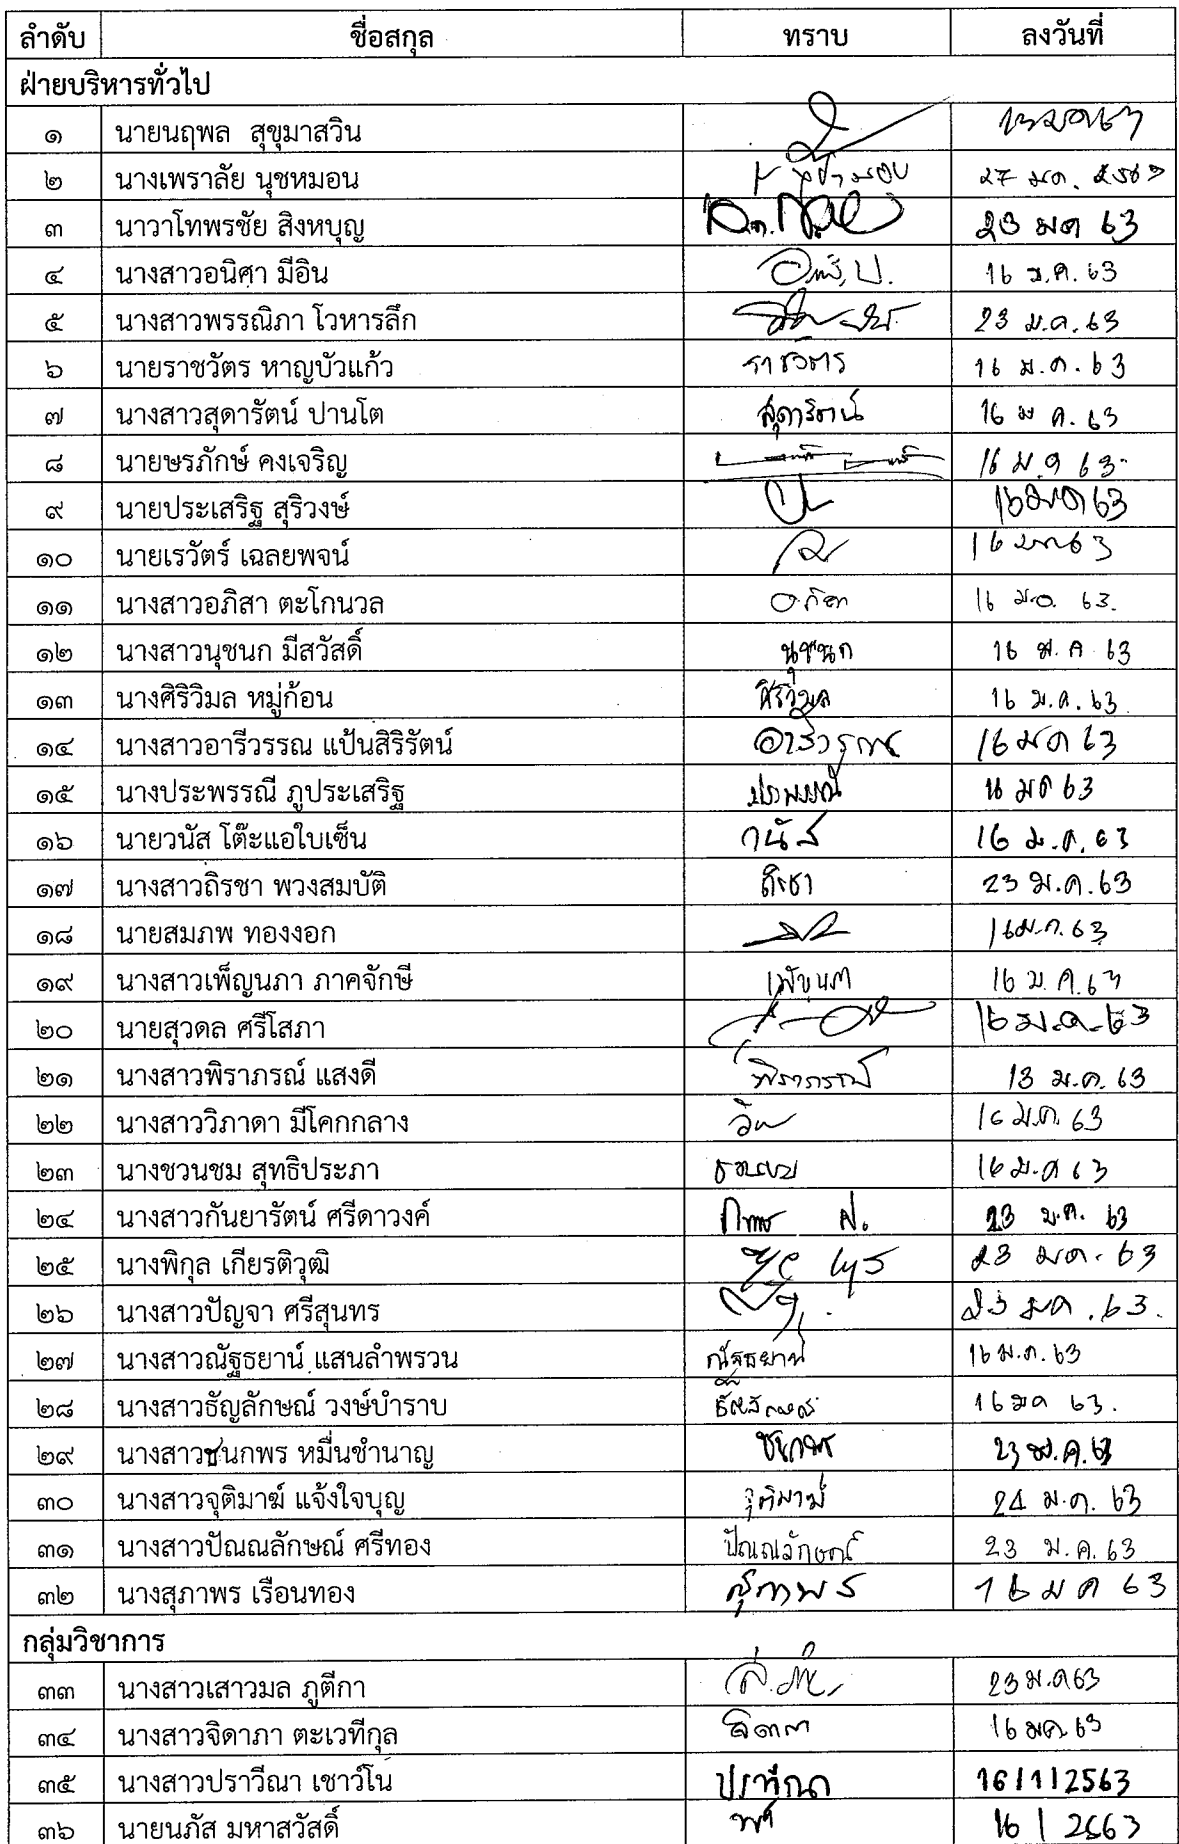 ลำดับ ชื่อสกุล ทราบ ลงวันที่
ฝ่ายบริหารทั่วไป
๑ นายนฤพล สุขุมาสวิน
๒ นางเพราลัย นุชหมอน ๒๗ มค. ๒๕๖๓
๓ นาวาโทพรชัย สิงหบุญ 23 มค 63
๔ นางสาวอนิศา มีอิน 16 ม.ค. 63
๕ นางสาวพรรณิภา โวหารลึก 23 ม.ค. 63
๖ นายราชวัตร หาญบัวแก้ว ราชวัตร 16 ม.ค. 63
๗ นางสาวสุดารัตน์ ปานโต สุดารัตน์ 16 ม ค. 63
๘ นายษรภักษ์ คงเจริญ 16 ม ค 63
๙ นายประเสริฐ สุริวงษ์ 16 มค 63
๑๐ นายเรวัตร์ เฉลยพจน์ 16 มค 63
๑๑ นางสาวอภิสา ตะโกนวล อภิสา 16 ม.ค. 63.
๑๒ นางสาวนุชนก มีสวัสดิ์ นุชนก 16 ม.ค 63
๑๓ นางศิริวิมล หมู่ก้อน ศิริวิมล 16 ม.ค. 63
๑๔ นางสาวอารีวรรณ แป้นสิริรัตน์ อารีวรรณ 16 มค 63
๑๕ นางประพรรณี ภูประเสริฐ ประพรรณี 16 มค 63
๑๖ นายวนัส โต๊ะแอใบเซ็น วนัส 16 ม.ค. 63
๑๗ นางสาวถิรชา พวงสมบัติ ถิรชา 23 ม.ค. 63
๑๘ นายสมภพ ทองงอก 16 ม.ค. 63
๑๙ นางสาวเพ็ญนภา ภาคจักษี เพ็ญนภา 16 ม.ค. 63
๒๐ นายสุวดล ศรีโสภา 16 ม.ค. 63
๒๑ นางสาวพิราภรณ์ แสงดี พิราภรณ์ 13 ม.ค. 63
๒๒ นางสาววิภาดา มีโคกกลาง 16 ม.ค. 63
๒๓ นางชวนชม สุทธิประภา ชวนชม 16 ม.ค 63
๒๔ นางสาวกันยารัตน์ ศรีดาวงค์ 23 ม.ค. 63
๒๕ นางพิกุล เกียรติวุฒิ 23 มค. 63
๒๖ นางสาวปัญจา ศรีสุนทร 23 มค. 63.
๒๗ นางสาวณัฐธยาน์ แสนลำพรวน ณัฐธยาน์ 16 ม.ค. 63
๒๘ นางสาวธัญลักษณ์ วงษ์บำราบ ธัญลักษณ์ 16 มค 63.
๒๙ นางสาวชนกพร หมื่นชำนาญ ชนกพร 23 ม.ค. 63
๓๐ นางสาวจุติมาฆ์ แจ้งใจบุญ จุติมาฆ์ 24 ม.ค. 63
๓๑ นางสาวปัณณลักษณ์ ศรีทอง ปัณณลักษณ์ 23 ม.ค. 63
๓๒ นางสุภาพร เรือนทอง สุภาพร 16 ม ค 63
กลุ่มวิชาการ
๓๓ นางสาวเสาวมล ภูตีกา 23 ม.ค 63
๓๔ นางสาวจิดาภา ตะเวทีกุล จิดาภา 16 มค. 63
๓๕ นางสาวปราวีณา เชาว์โน ปราวีณา 16/1/2563
๓๖ นายนภัส มหาสวัสดิ์ 16 1 2563